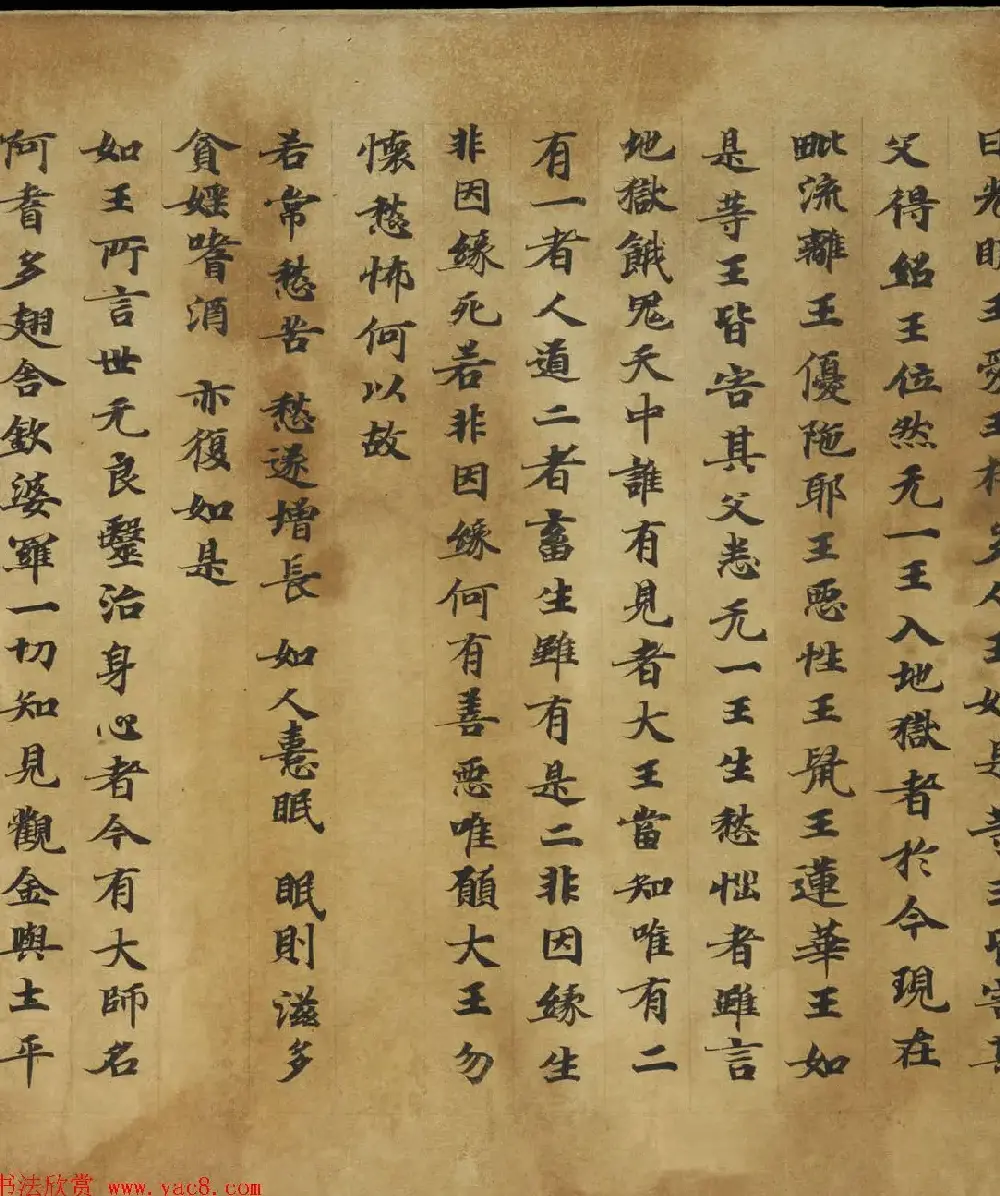 日光明王愛王持多人王如是等王皆害其
父得紹王位然无一王入地獄者於今現在
毗流離王優陁耶王惡性王鼠王蓮華王如
是等王皆害其父悉无一王生愁惱者雖言
地獄餓鬼天中誰有見者大王當知唯有二
有一者人道二者畜生雖有是二非因緣生
非因緣死若非因緣何有善惡唯願大王勿
懷愁怖何以故
若常愁苦 愁遂增長 如人憙眠 眠則滋多
貪婬嗜酒 亦復如是
如王所言世无良醫治身心者今有大師名
阿耆多翅舍欽婆羅一切知見觀金與土平
书法欣赏 www.yac8.com